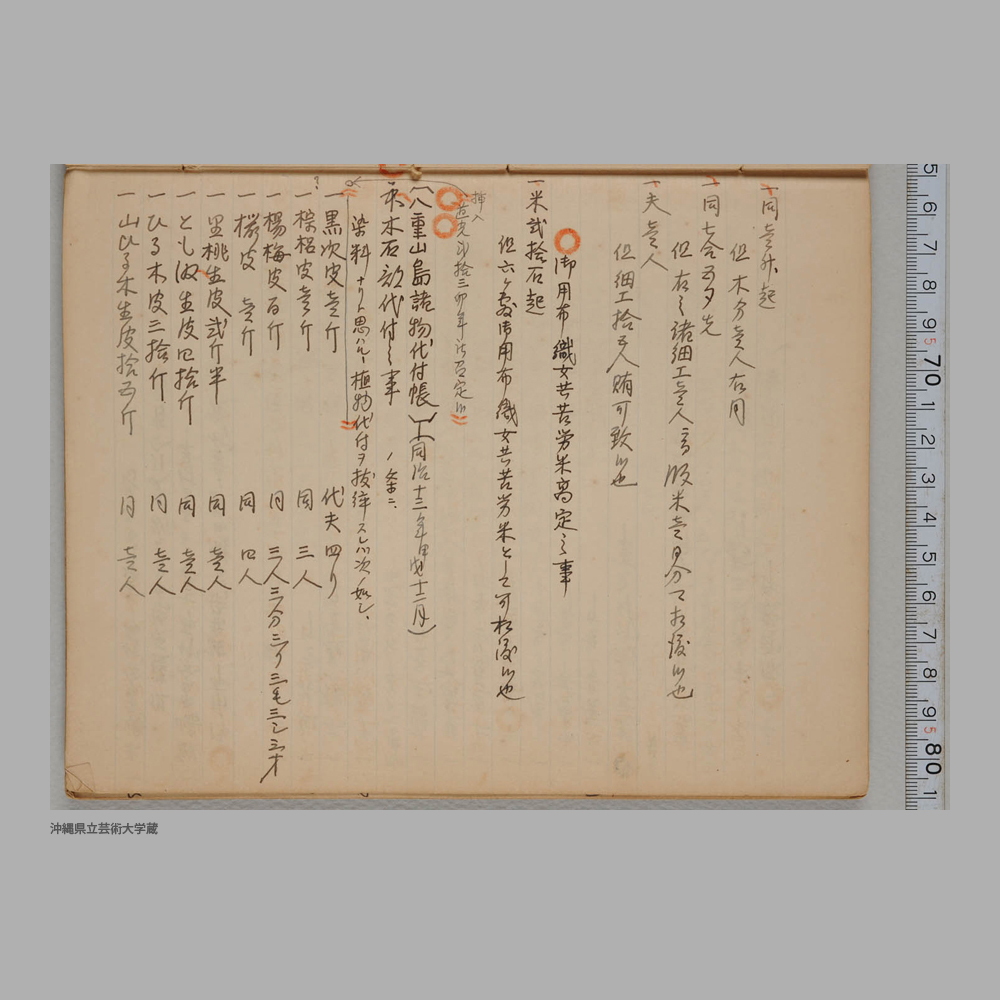 一同壱升起
但木分壱人右同
一同七合五夕先
但右之諸細工壱人ニ付飯米壱日分〆相渡候也
一夫壱人
但細工拾五人賄可致候也
御用布織女共苦労米高定之事
一米弐拾石起
但六ヶ敷御用布織女共苦労米として可相渡候也
挿入
道光弐拾三卯年 定候
八重山島諸物代付帳(同治十三年甲戌十二月)
禾木石類代付之事ノ条ニ
染料ナリト思ハルル植物代付ヲ抜綷スレバ次ノ如シ、
?
一黒次皮壱斤 代夫四り
一棕梠皮壱斤 同三人
一楊梅皮百斤 同三人三分三り三毛三し三才
一桜皮壱斤 同四人
一里桃生皮弐斤半 同壱人
一とも 生皮四拾斤 同壱人
一ひる木皮三拾斤 同壱人
一山ひる木生皮拾五斤 同壱人
5 6 7 8 9 5 70 1 2 3 4 5 6 7 8 9 5 80 1
沖縄県立芸術大学蔵